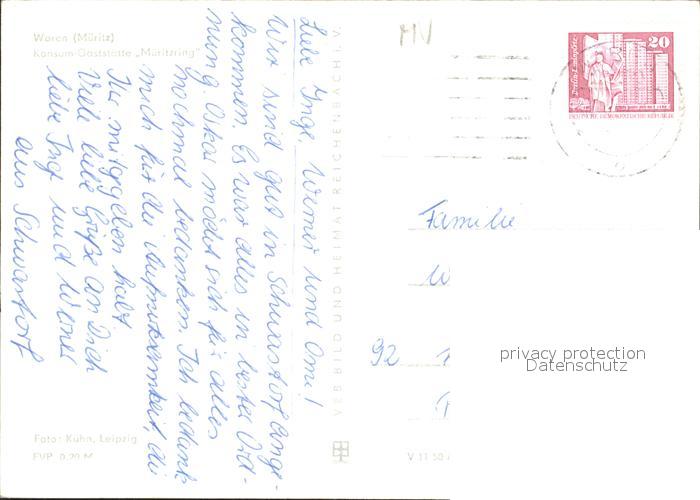 Waren (Müritz)
Konsum-Gaststätte „Müritzring"
Liebe Inge, Werner und Omi!
Wir sind gut in Schwastorf ange-
kommen. Es war alles in bester Ord-
nung. Oskar möchte sich für alles
nochmal bedanken. Ich bedank
mich für die Aufmerksamkeit, die
Ihr mitgegeben habt.
Viele liebe Grüße an Dich
liebe Inge und Werner
aus Schwastorf
Foto: Kühn, Leipzig
EVP 0,20 M
VEB BILD UND HEIMAT REICHENBACH I. V.
V 11 50
MV
20
DEUTSCHE DEMOKRATISCHE REPUBLIK
Familie
W
92
privacy protection
Datenschutz